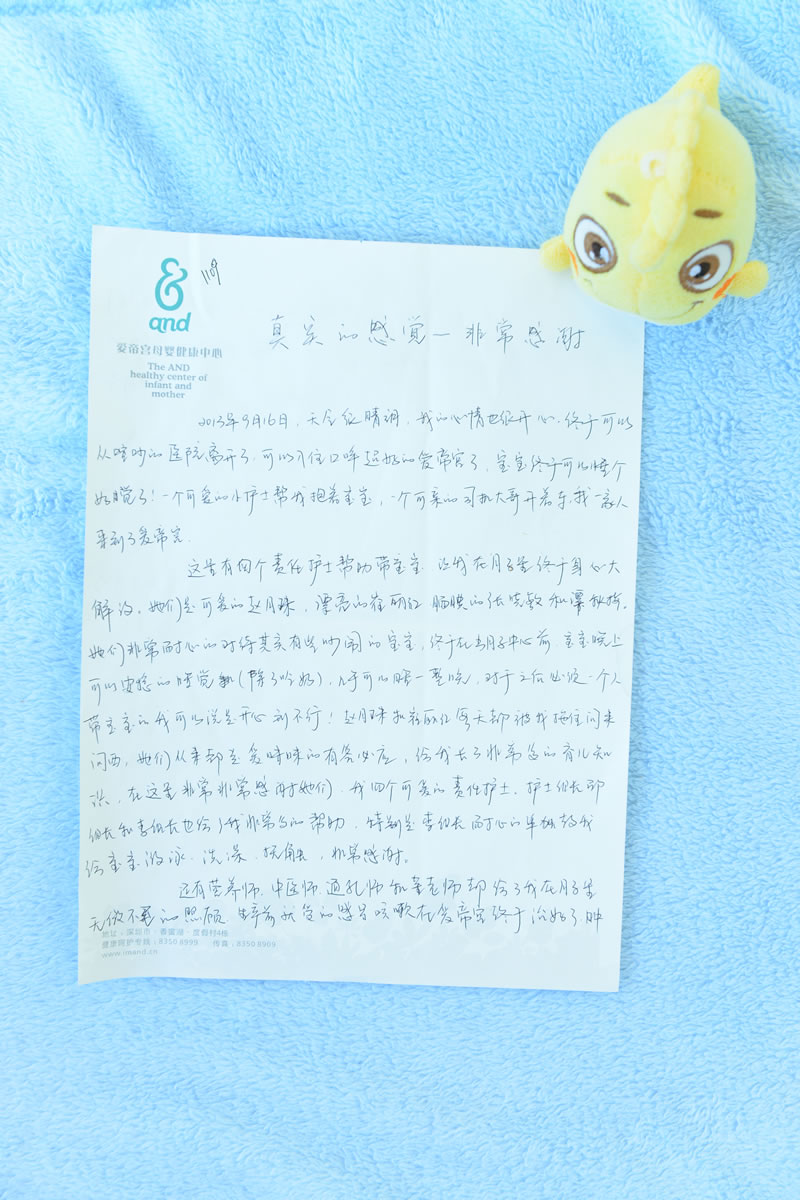 and
1109
爱帝宫母婴健康中心
The AND
healthy center of
infant and
mother
真实的感觉—非常感谢
2013年9月16日,天气很晴朗,我的心情也很开心.终于可以
从吵的医院离开了,可以入住口碑超好的爱帝宫了,宝宝终于可以睡个
好觉了!一个可爱的小护士帮我抱着宝宝,一个可亲的司机大哥开着车,我一家人
来到了爱帝宫.
这里有四个责任护士帮助带宝宝 让我在月子里终于身心大
解放,她们是可爱的赵月珠,漂亮的崔丽红 的张 和
她们非常耐心的对待其实有些吵闹的宝宝,终于在出月子中心前,宝宝晚上
可以安稳的睡觉(除了吃奶),几乎可以睡一整晚,对于之后必须一个人
带宝宝的我可以说是开心到不行!赵月珠和崔丽红每天都被我拖住问东
问西,她们从来都是的有答必应,给我长了非常多的育儿知
识,在这里非常非常感谢她们,我四个可爱的责任护士.护士组长邵
组长和李组长也给了我非常多的帮助,特别是李组长耐心的单独教我
给宝宝游泳.洗澡.抚触,非常感谢。
还有营养师.中医师.通乳师和老师都给了我在月子里
无微不至的照顾.生产前就有的感冒咳嗽在爱帝宫终于治好了.肿
地址:深圳市·香蜜湖·度假村4栋
健康呵护专线:8350 8999 传真:8350 8909
www.imand.cn